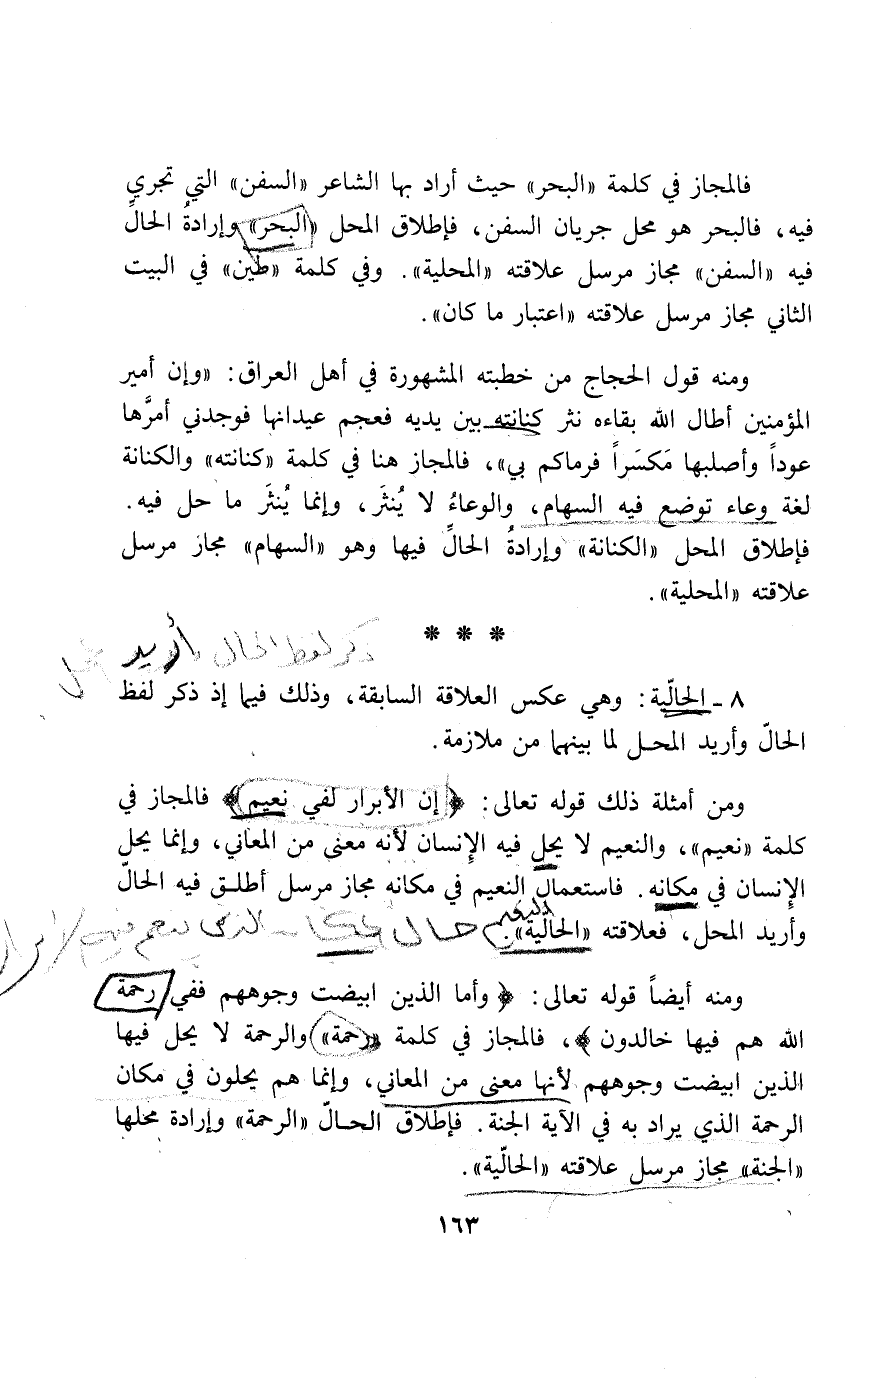 فالمجاز في كلمة «البحر» حيث أراد بها الشاعر «السفن» التي تجري
فيه، فالبحر هو محل جريان السفن، فإطلاق المحل «البحر» وإرادةُ الحالِّ
فيه «السفن» مجاز مرسل علاقته «المحلية». وفي كلمة «طين» في البيت
الثاني مجاز مرسل علاقته «اعتبار ما كان».
ومنه قول الحجاج من خطبته المشهورة في أهل العراق: «وإن أمير
المؤمنين أطال الله بقاءه نثر كنانته بين يديه فعجم عيدانها فوجدني أمرَّها
عوداً وأصلبها مَكسَراً فرماكم بي»، فالمجاز هنا في كلمة «كنانته» والكنانة
لغة وعاء توضع فيه السهام، والوعاءُ لا يُنثَر، وإنما يُنثَر ما حل فيه.
فإطلاق المحل «الكنانة» وإرادةُ الحالِّ فيها وهو «السهام» مجاز مرسل
علاقته «المحلية».
* * *
ذكر لفظ الحال وأريد
٨ - الحالّية: وهي عكس العلاقة السابقة، وذلك فيما إذ ذكر لفظ
الحالّ وأريد المحل لما بينهما من ملازمة.
ومن أمثلة ذلك قوله تعالى: ﴿إن الأبرار لفي نعيم﴾ فالمجاز في
كلمة «نعيم»، والنعيم لا يحل فيه الإنسان لأنه معنى من المعاني، وإنما يحل
الإنسان في مكانه. فاستعمال النعيم في مكانه مجاز مرسل أطلق فيه الحالّ
وأريد المحل، فعلاقته «الحالية».
ومنه أيضاً قوله تعالى: ﴿وأما الذين ابيضت وجوههم ففي رحمة
الله هم فيها خالدون﴾، فالمجاز في كلمة «رحمة» والرحمة لا يحل فيها
الذين ابيضت وجوههم لأنها معنى من المعاني، وإنما هم يحلون في مكان
الرحمة الذي يراد به في الآية الجنة. فإطلاق الحالّ «الرحمة» وإرادة محلها
«الجنة» مجاز مرسل علاقته «الحالّية».
١٦٣